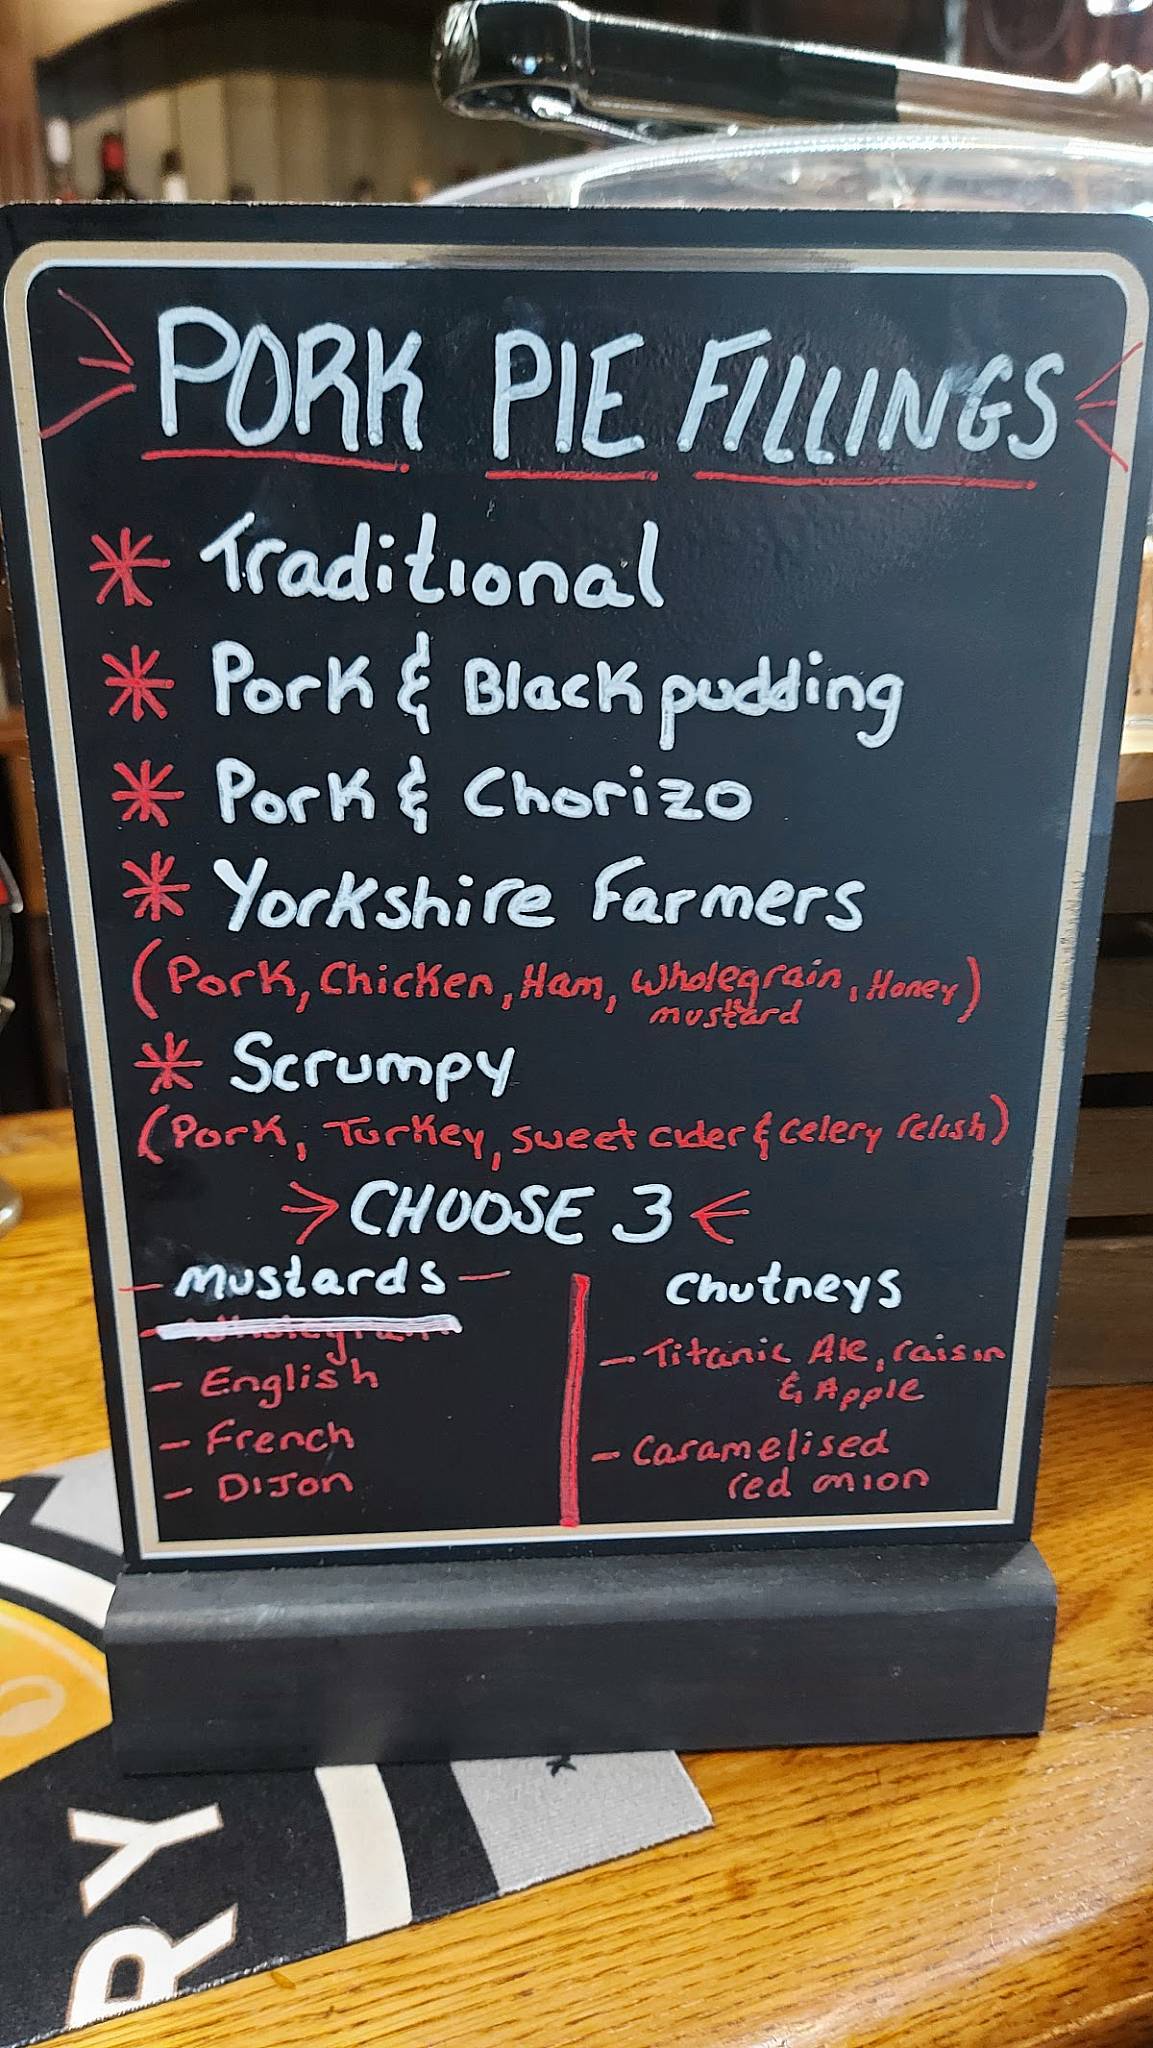 PORK PIE FILLINGS
* Traditional
* Pork & Black pudding
* Pork & Chorizo
* Yorkshire Farmers
(Pork, Chicken, Ham, wholegrain, Honey)
mustard
* Scrumpy
(Pork, Turkey, sweet cider & celery relish)
CHOOSE 3
- Mustards -
- Wholegrain
- English
- French
- DIJon
Chutneys
- Titanic Ale, raisin
& Apple
- Caramelised
red onion
RY